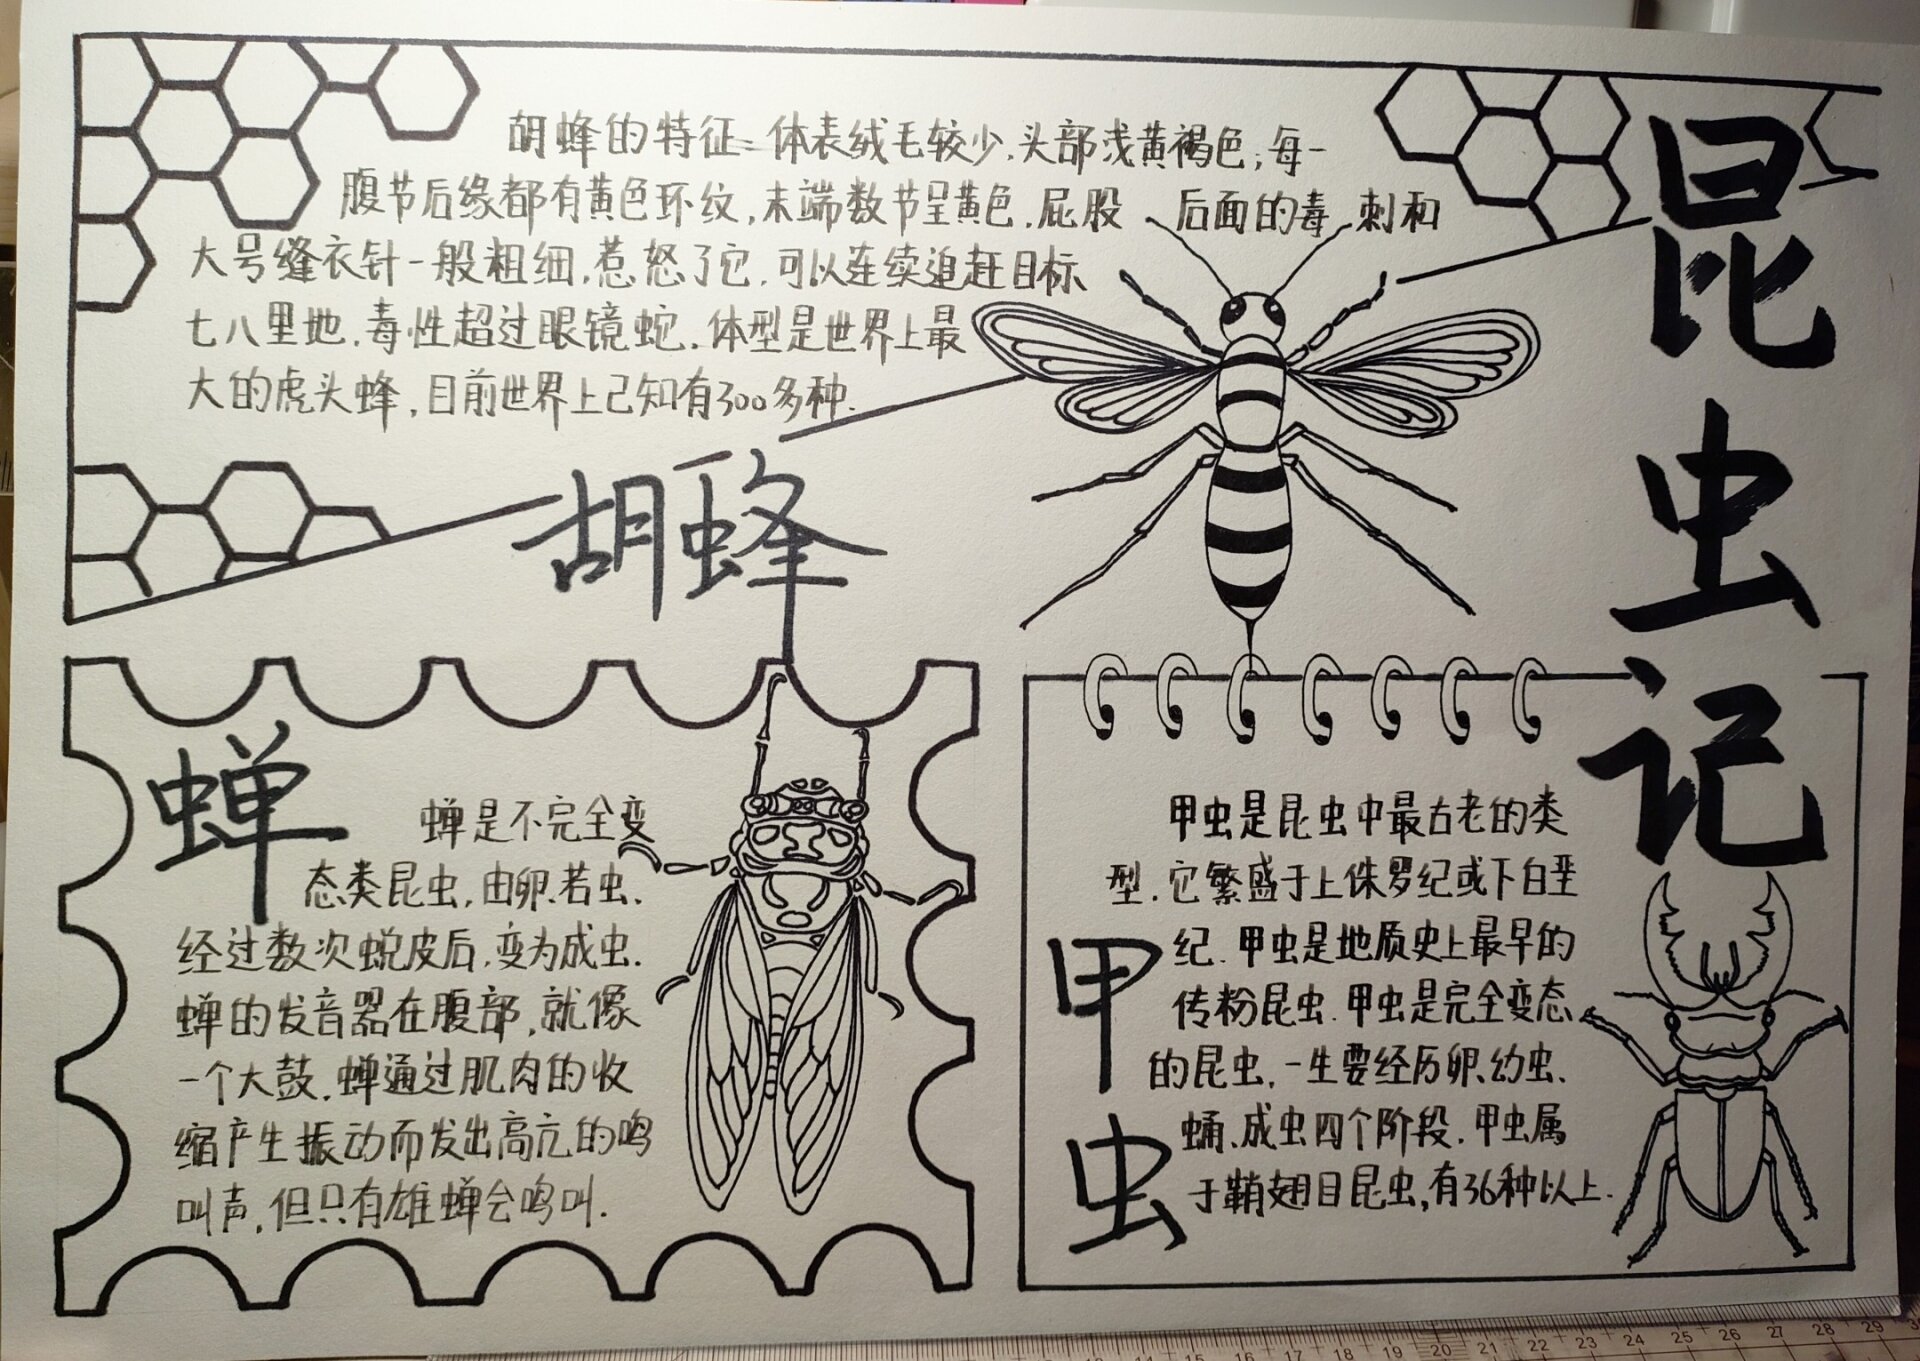 昆虫记
胡蜂的特征:体表绒毛较少,头部浅黄褐色,每一
腹节后缘都有黄色环纹,末端数节呈黄色,屁股后面的毒刺和
大号缝衣针一般粗细,惹怒了它,可以连续追赶目标
七八里地,毒性超过眼镜蛇,体型是世界上最
大的虎头蜂,目前世界上已知有300多种.
胡蜂
蝉
蝉是不完全变
态类昆虫,由卵、若虫、
经过数次蜕皮后,变为成虫.
蝉的发音器在腹部,就像
一个大鼓,蝉通过肌肉的收
缩产生振动而发出高亢的鸣
叫声,但只有雄蝉会鸣叫.
甲虫
甲虫是昆虫中最古老的类
型,它繁盛于上侏罗纪或下白垩
纪.甲虫是地质史上最早的
传粉昆虫.甲虫是完全变态
的昆虫,一生要经历卵、幼虫、
蛹、成虫四个阶段.甲虫属
于鞘翅目昆虫,有36种以上.
14 15 16 17 18 19 20 21 22 23 24 25 26 27 28 29